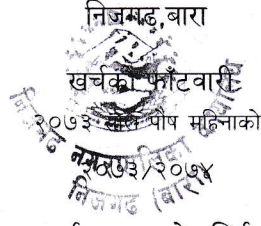 निजगढ,बारा
खर्चको फाँटवारी
२०७३ साल पौष महिनाको
२०७३/२०७४
निजगढ नगरपालिका
निजगढ (बारा)